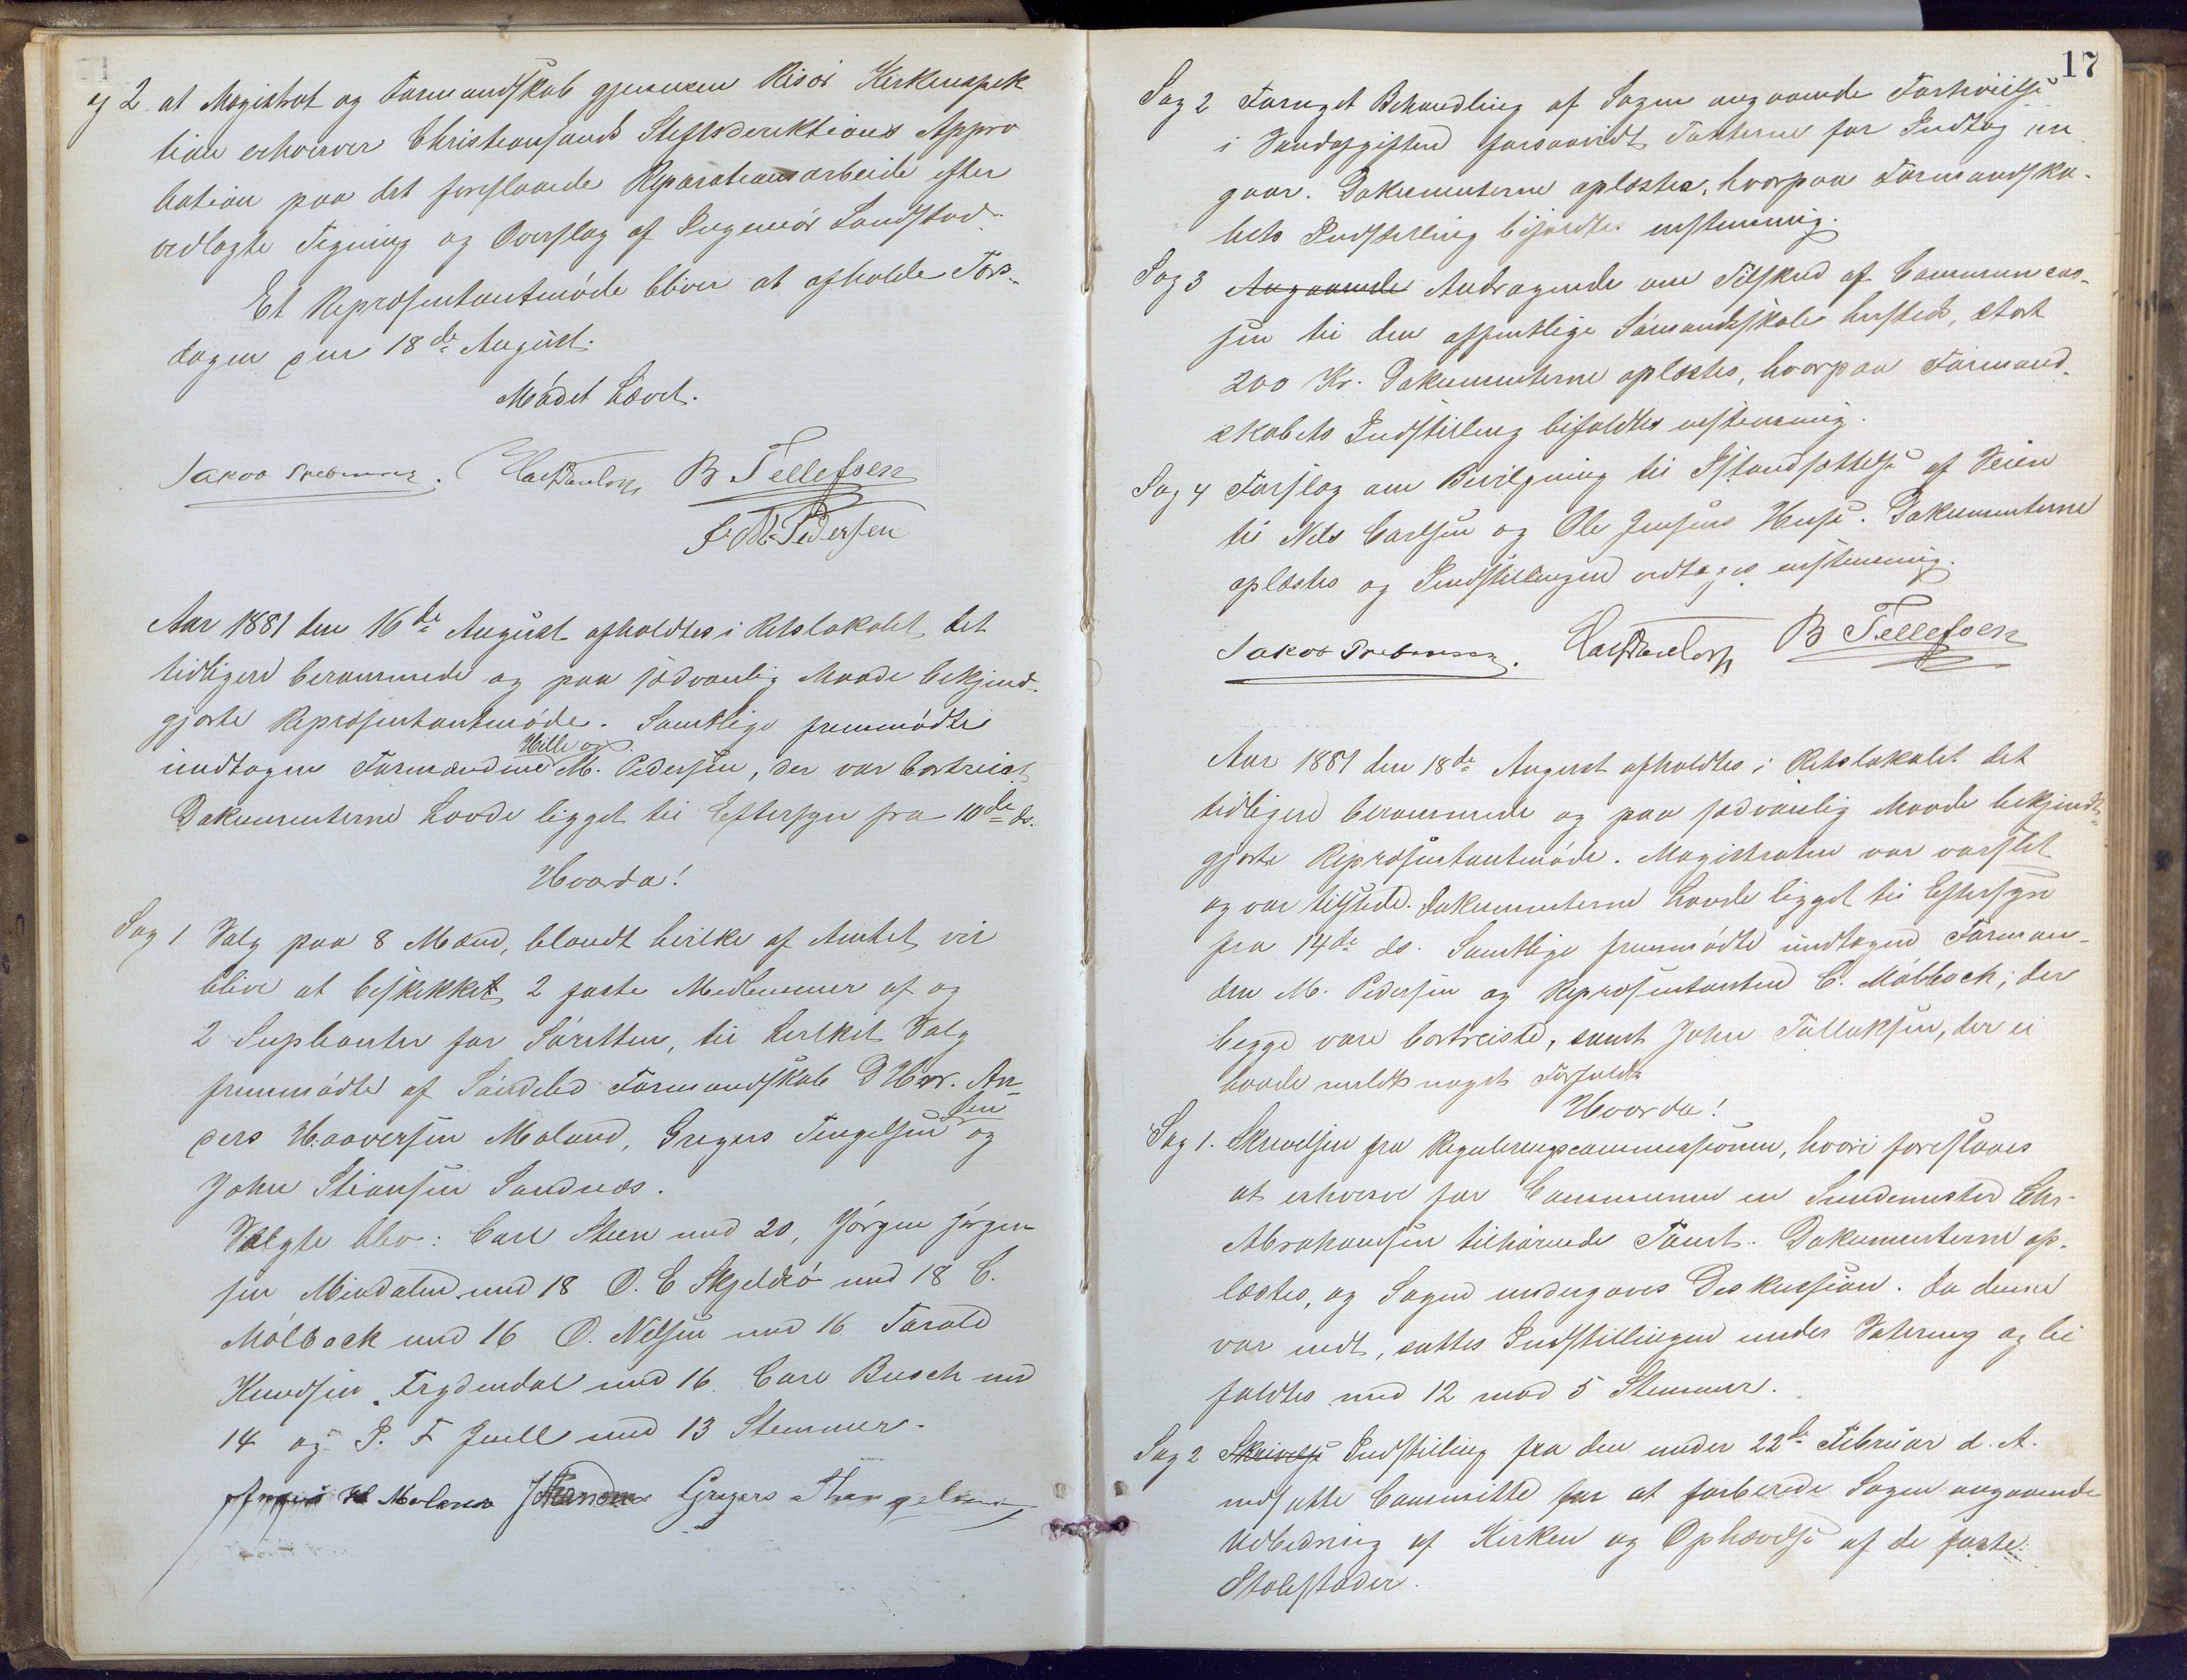 Sag 2 at Magistrat og Formandskab gjennem Risør Kirkeinspek
tion erhverver Christiansands Stiftsdirektions Appro
bation paa det foreslaaede Reparationsarbeide efter
vedlagte Tegning og Overslag af Ingeniør Sandstad.
Et Repræsentantmøde bliver at afholde Tors-
dagen den 18de August.
Mødet hævet.
B Tellefsen
J. M. Pedersen
Aar 1881 den 16de August afholdtes i Retslokalet det
tidligere berammede og paa sædvanlig Maade bekjend-
gjorte Repræsentantmøde. Samtlige fremmødte
undtagen Formændene Hille og M. Pedersen, der var bortreist
Dokumenterne havde ligget til Eftersyn fra 10de ds.
Hvorda!
Sag 1 Valg paa 8 Mænd, blandt hvilke af Amtet vil
blive at beskikket 2 faste Medlemmer af og
2 Suplianter for Søretten, til hvilket Valg
fremmødte af Søndeled Formandskab D'Hrr. An-
ders Haaversen Moland, Gregers Tingelsen og
John Stiansen Sandnæs.
Valgte blev: Carl Steen med 20, Jørgen Jørgen
sen Mindalen med 18 O. E Skjeldsø med 18 C.
Mølback med 16 O. Nilsen med 16 Tarald
Knudsen Frydendal med 16 Carl Busch med
14 og P. F Juell med 13 Stemmer.
H Moland Gregers Thingelsen
17
Sag 2 Foruget Behandling af Sagen angaaende Forhøielse
i Vandafgiften forsaavidt Taxterne for Indtog an
gaar. Dokumenterne oplæstes, hvorpaa Formandska-
bets Indstilling bifaldtes enstemmig.
Sag 3 Angaaende Andragende om Tilskud af Communecas-
sen til den offentlige Sømandsskole hersteds, stort
200 Kr. Dokumenterne oplæstes, hvorpaa Formand-
skabets Indstilling bifaldtes enstemmig.
Sag 4 Forslag om Bevilgning til Istandsættelse af Veien
til Nils Carlsen og Ole Jensens Huse. Dokumenterne
oplæstes og Indstillingen vedtoges enstemmig.
B Tellefsen
Aar 1881 den 18de August afholdtes i Retslokalet det
tidligere berammede og paa sædvanlig Maade bekjendt-
gjorte Repræsentantmøde. Magistraten var varslet
og var tilstede. Dokumenterne havde ligget til Eftersyn
fra 14de ds. Samtlige fremmødte undtagen Forman-
den M. Pedersen og Repræsentanten C. Mølback; der
begge vare bortreiste, samt John Tallaksen, der ei
havde meldt noget Forfald.
Hvorda!
Sag 1. Skrivelsen fra Reguleringscommissionen, hvori foreslaaes
at erhverve for Communen en Smedemester Chr.
Abrahamsen tilhørende Tomt. Dokumenterne op-
læstes, og Sagen undergaves Diskussion. Da denne
var endt, sattes Indstillingen under Votering og bi
faldtes med 12 mod 5 Stemmer.
Sag 2 Skrivelse Indstilling fra den under 22de Februar d. A.
nedsatte Committe for at forberede Sagen angaaende
Udbedring af Kirken og Ophævelse af de faste
Stolestader.